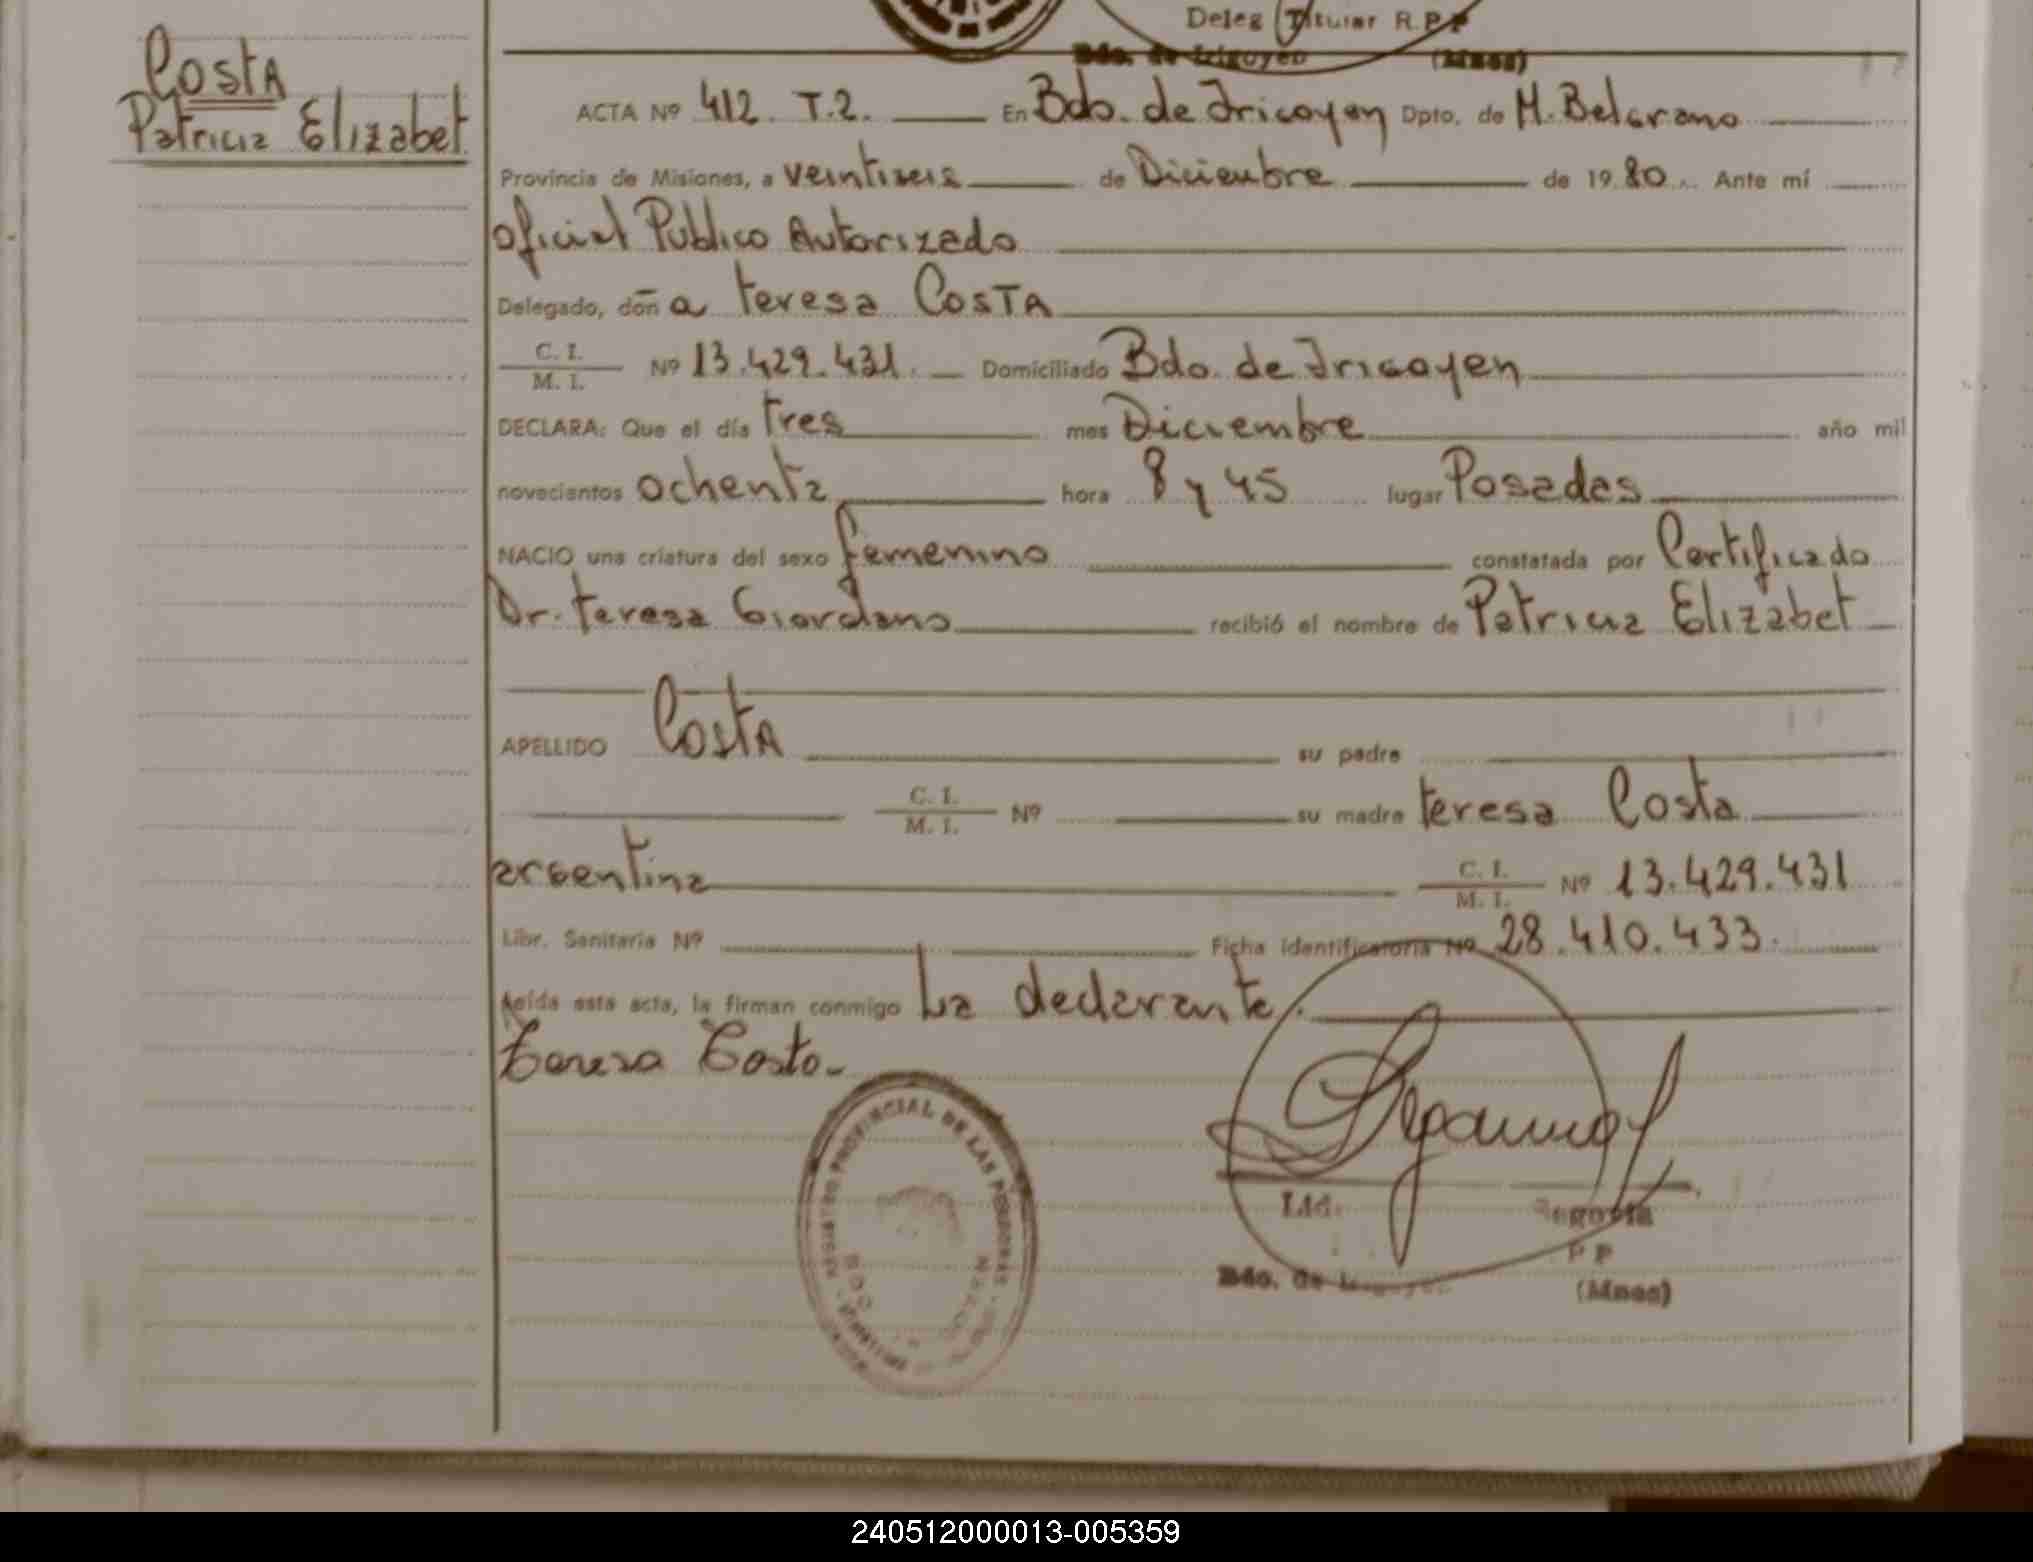 Deleg Titular R.P.P
Bdo. de Irigoyen (Mnes)
Costa
Patricia Elizabet
ACTA Nº 412. T.2. En Bdo. de Iricoyen Dpto. de M. Belgrano
Provincia de Misiones, a veintiseis de Diciembre de 1980. Ante mí
oficial Publico Autorizado
Delegado, doña teresa COSTA
C. I.
M. I. Nº 13.429.431. Domiciliado Bdo. de Iricoyen
DECLARA: Que el día tres mes Diciembre año mil
novecientos ochenta hora 8 y 45 lugar Posadas
NACIO una criatura del sexo femenino constatada por Certificado
Dr. teresa Giordano recibió el nombre de Patricia Elizabet
APELLIDO Costa su padre
C. I.
M. I. Nº su madre teresa Costa
argentina C. I.
M. I. Nº 13.429.431
Libr. Sanitaria Nº Ficha identificatoria Nº 28.410.433.
Leída esta acta, la firman conmigo La declarante.
Teresa Costa-
REGISTRO PROVINCIAL DE LAS PERSONAS
Lid. Segovia
P P
Bdo. de Irigoyen (Mnes)
240512000013-005359